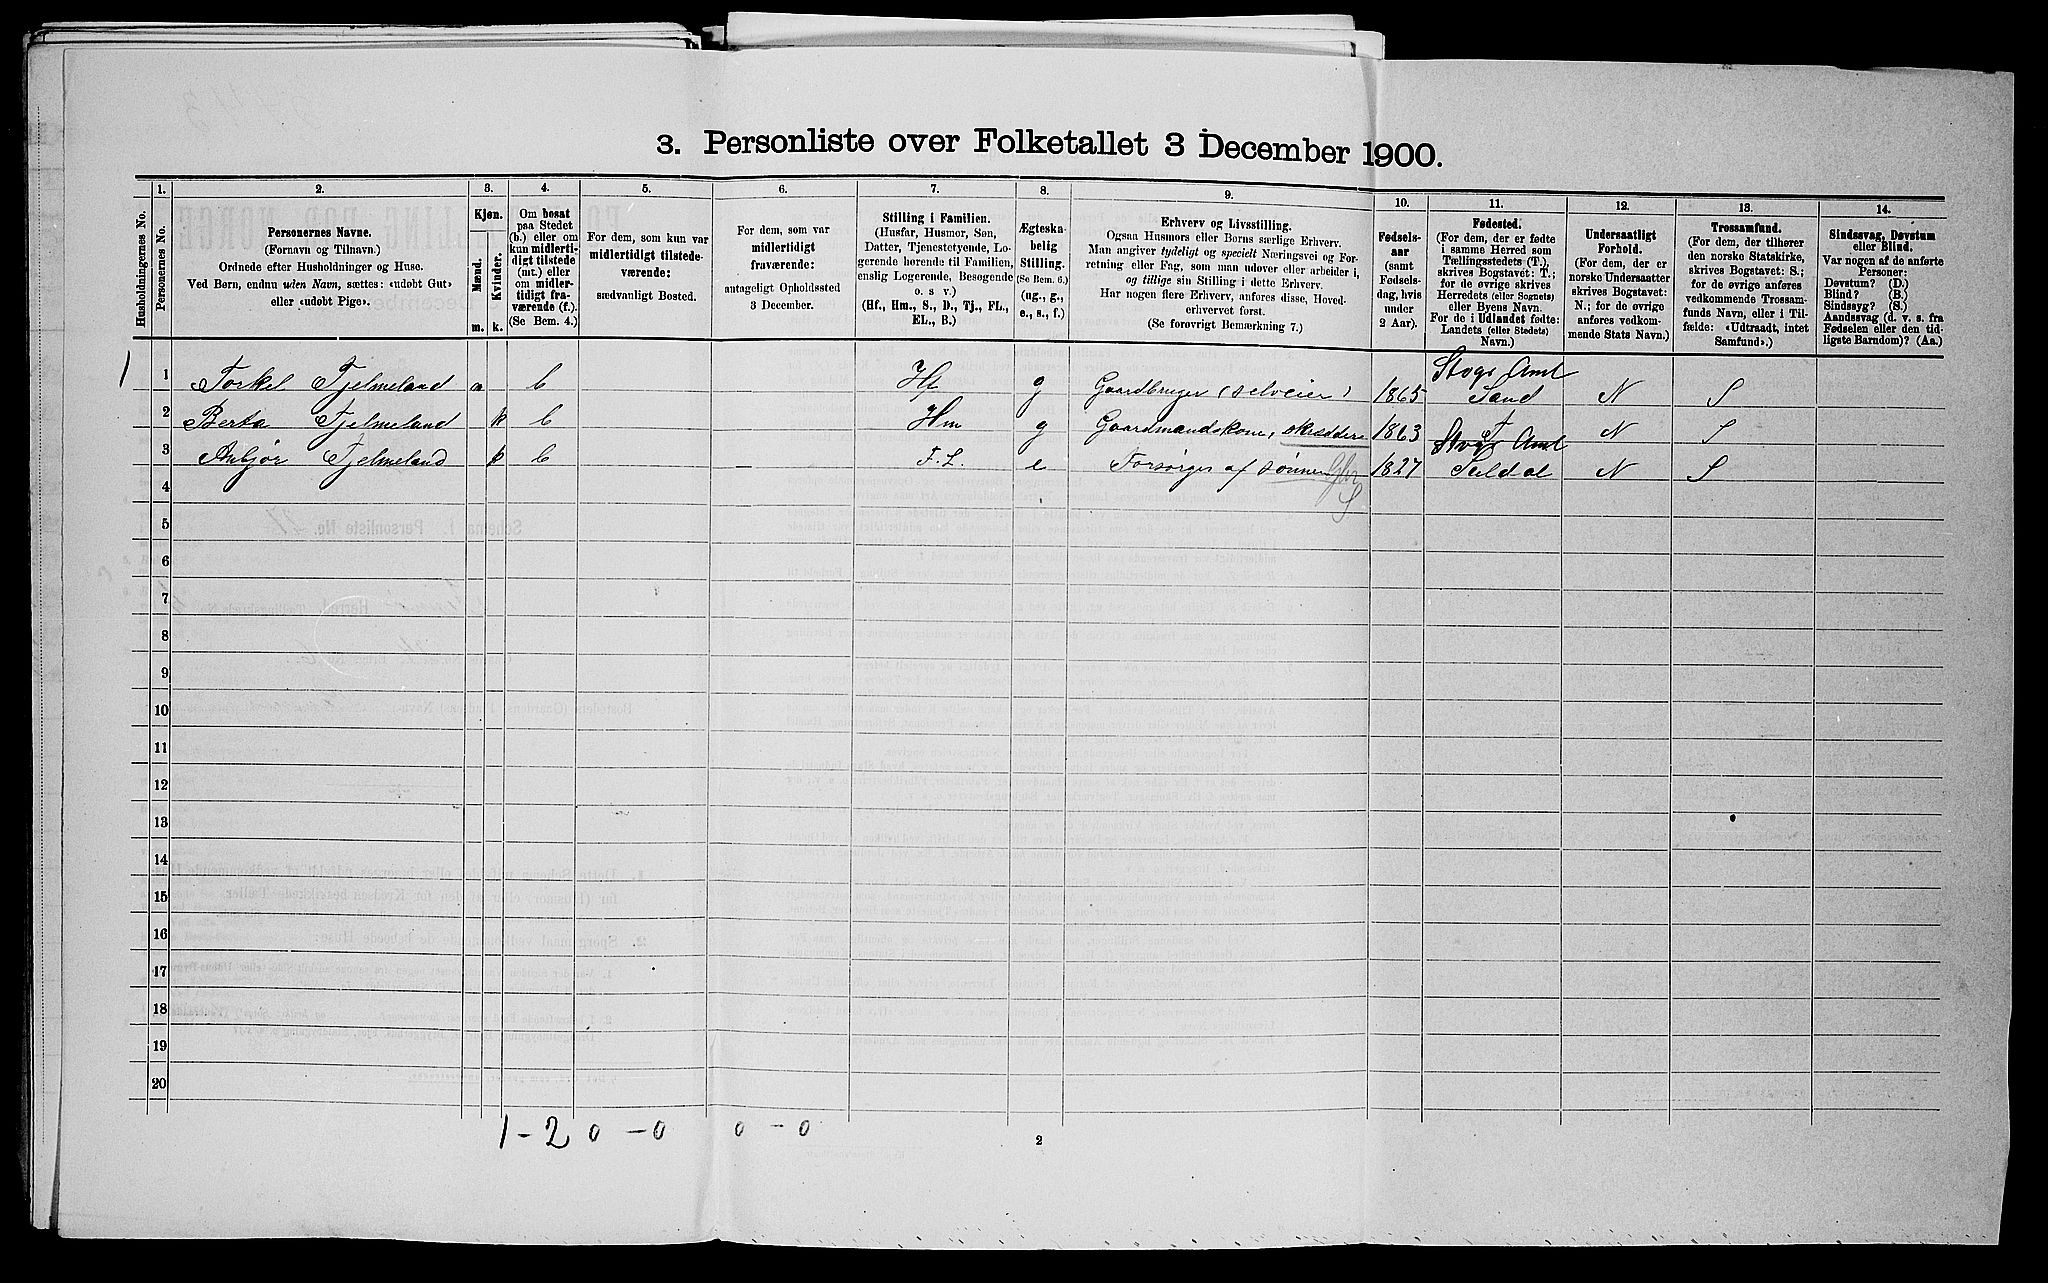 3. Personliste over Folketallet 3 December 1900.
Husholdningernes No.
1.
Personernes No.
2.
Personernes Navne.
(Fornavn og Tilnavn.)
Ordnede efter Husholdninger og Huse.
Ved Børn, endnu uden Navn, sættes: «udøbt Gut»
eller «udøbt Pige».
3.
Kjøn.
Mænd.
Kvinder.
m.
k.
4.
Om bosat
paa Stedet
(b.) eller om
kun midlerti-
digt tilstede
(mt.) eller
om midler-
tidigt fra-
værende (f.).
(Se Bem. 4.)
5.
For dem, som kun var
midlertidigt tilstede-
værende:
sædvanligt Bosted.
6.
For dem, som var
midlertidigt
fraværende:
antageligt Opholdssted
3 December.
7.
Stilling i Familien.
(Husfar, Husmor, Søn,
Datter, Tjenestetyende, Lo-
gerende hørende til Familien,
enslig Logerende, Besøgende
o. s v.)
(Hf., Hm., S., D., Tj., FL.,
EL., B.)
8.
Ægteska-
belig
Stilling.
(Se Bem. 6.)
(ug., g.,
e., s., f.)
9.
Erhverv og Livsstilling.
Ogsaa Husmors eller Børns særlige Erhverv.
Man angiver tydeligt og specielt Næringsvei og For-
retning eller Fag, som man udøver eller arbeider i,
og tillige sin Stilling i dette Erhverv.
Har nogen flere Erhverv, anføres disse, Hoved-
erhvervet først.
(Se forøvrigt Bemærkning 7.)
10.
Fødsels-
aar
(samt
Fødsels-
dag, hvis
under
2 Aar).
11.
Fødested.
(For dem, der er fødte
i samme Herred som
Tællingsstedets (T.),
skrives Bogstavet: T.;
for de øvrige skrives
Herredets (eller Sognets)
eller Byens Navn.
For de i Udlandet fødte:
Landets (eller Stedets)
Navn.)
12.
Undersaatligt
Forhold.
(For dem, der er
norske Undersaatter
skrives Bogstavet:
N.; for de øvrige
anføres vedkom-
mende Stats Navn.)
13.
Trossamfund.
(For dem, der tilhører
den norske Statskirke,
skrives Bogstavet: S.;
for de øvrige anføres
vedkommende Trossam-
funds Navn, eller i Til-
fælde: «Udtraadt, intet
Samfund».)
14.
Sindssvag, Døvstum
eller Blind.
Var nogen af de anførte
Personer:
Døvstum? (D.)
Blind? (B.)
Sindssyg? (S.)
Aandssvag (d. v. s. fra
Fødselen eller den tid-
ligste Barndom)? (Aa.)
Stvgr Amt
1 1 Torkel Tjelmeland m b Hf g Gaardbruger (selveier) 1865 Sand N S
2 Berta Tjelmeland k b Hm g Gaardmandskone, skrædder 1863 T N S
Stvgr Amt
3 Anbjør Tjelmeland k b — — F. L. e Forsørges af sønnen Gbr 1827 Suldal N S
S
4
5
6
7
8
9
10
11
12
13
14
15
16
17
18
19
20
1-2 0-0 0-0
2